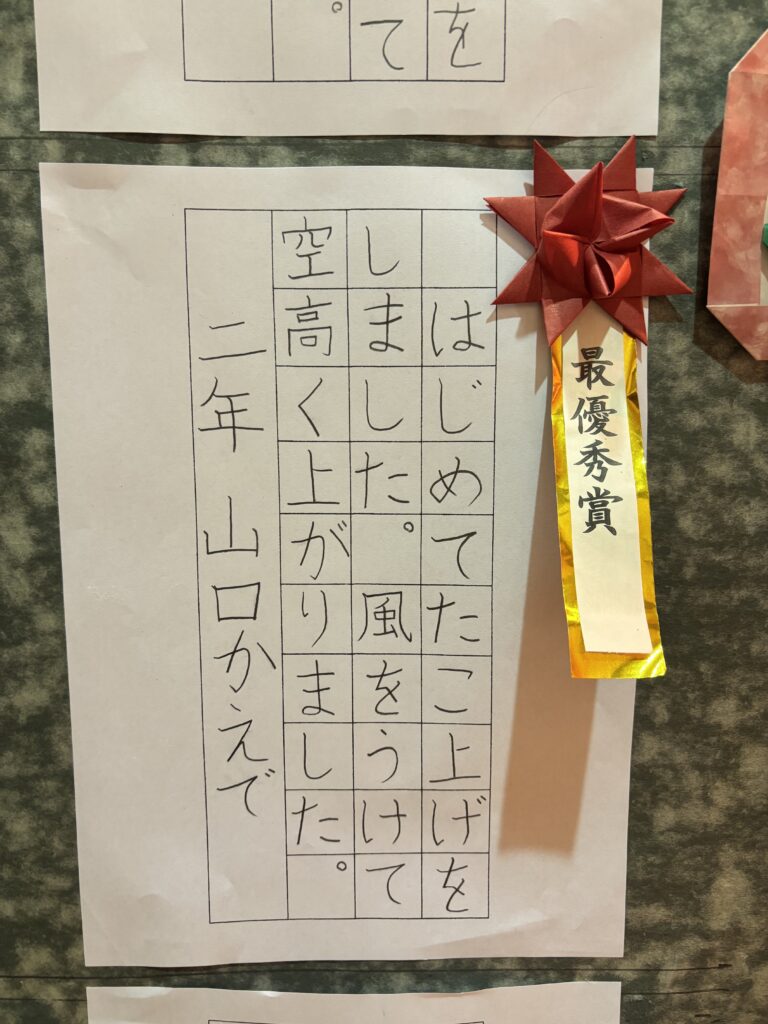 を
て
。
最優秀賞
はじめてたこ上げを
しました。風をうけて
空高く上がりました。
二年 山口かえで